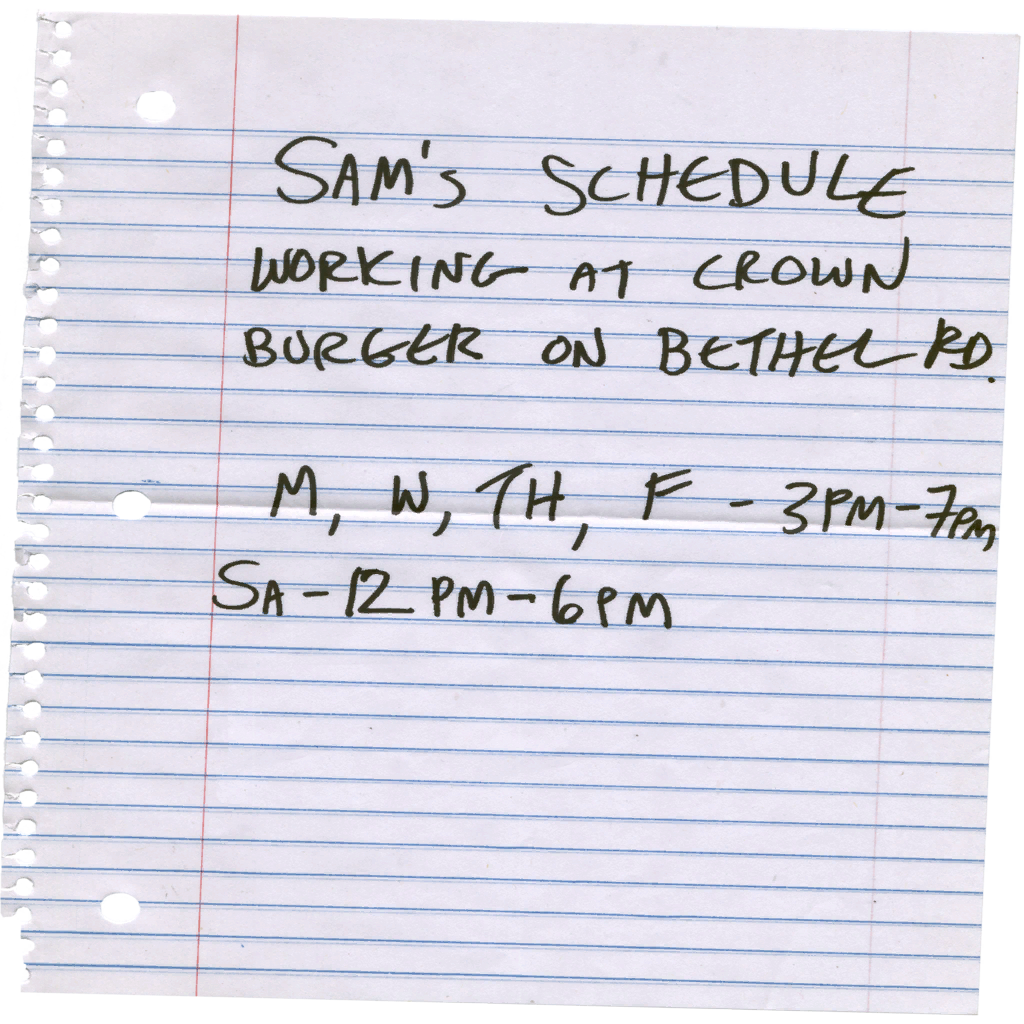 SAM's SCHEDULE
WORKING AT CROWN
BURGER ON BETHEL RD.
M, W, TH, F - 3PM-7PM
SA-12 PM-6PM